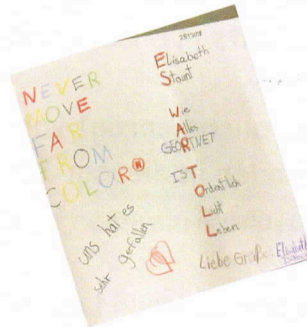 NEVER
MOVE
FAR
FROM
COLOR®
uns hat es
sehr gefallen
Elisabeth
Staunt
Wie
Alles
GEORDNET
IST
Ordentlich
Licht
Leben
Liebe Grüße